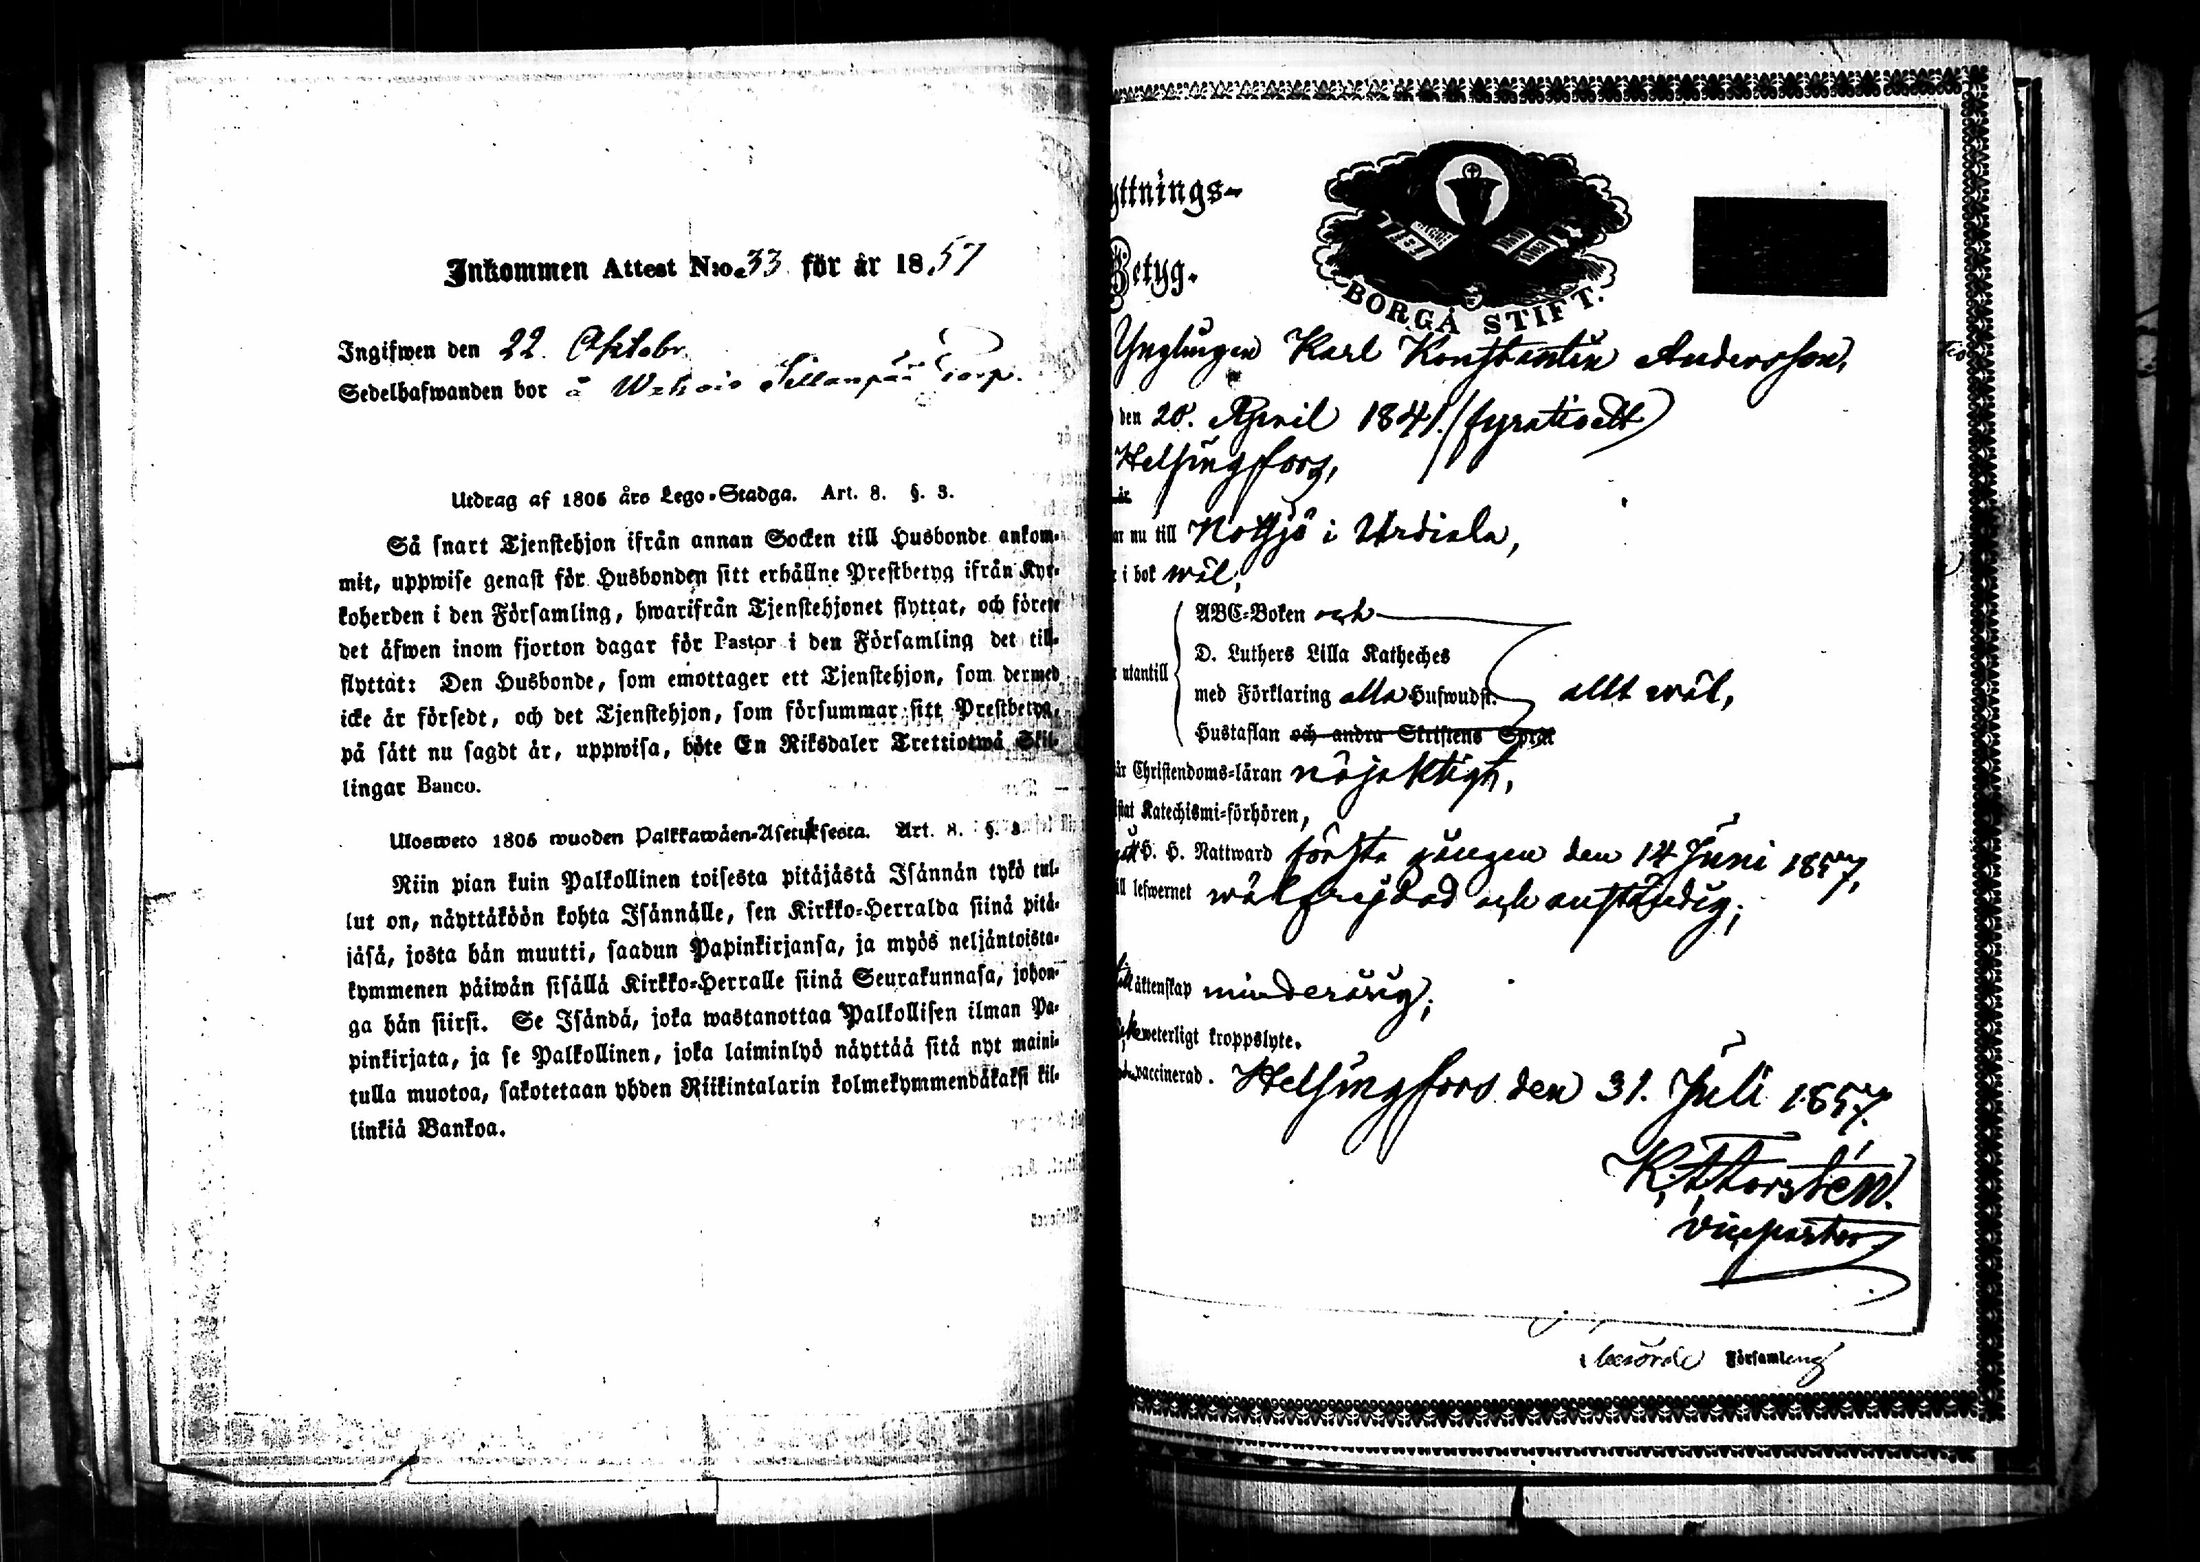 Inkommen Attest N:o 33 för år 1857
Ingifwen den 22 Oktobr
Sedelhafwanden bor å Torp.
Utdrag af 1805 års Lego-Stadga. Art. 8. §. 3.
Så snart Tjenstehjon ifrån annan Socken till Husbonde ankom-
mit, uppwise genast för Husbonden sitt erhållne Prestbetyg ifrån Kyr-
koherden i den Församling, hwarifrån Tjenstehjonet flyttat, och förete
det äfwen inom fjorton dagar för Pastor i den Församling det till-
flyttat: Den Husbonde, som emottager ett Tjenstehjon, som dermed
icke är försedt, och det Tjenstehjon, som försummar sitt Prestbetyg,
på sätt nu sagdt är, uppwisa, böte En Riksdaler Trettiotwå Skil-
lingar Banco.
Ulosweto 1805 wuoden Palkkawäen-Asetuksesta. Art. 8. §. 3.
Niin pian kuin Palkollinen toisesta pitäjästä Isännän tykö tul-
lut on, näyttäköön kohta Isännälle, sen Kirkko-Herralda siinä pitä-
jäsä, josta hän muutti, saadun Papinkirjansa, ja myös neljäntoista-
kymmenen päiwän sisällä Kirkko-Herralle siinä Seurakunnasa, johon-
ga hän siirsi. Se Isändä, joka wastanottaa Palkollisen ilman Pa-
pinkirjata, ja se Palkollinen, joka laiminlyö näyttää sitä nyt maini-
tulla muotoa, sakotetaan yhden Riikintalarin kolmekymmendäkaksi kil-
linkiä Bankoa.
yttnings-
Betyg.
BORGÅ STIFT.
Ynglingen Karl Konstantin Andersson,
den 20. April 1841. (fyratioett)
Helsingfors,
är
ar nu till Nottjö i Urdiala,
i bok wäl,
utantill
ABC-Boken och
D. Luthers Lilla Katheches
med Förklaring alla Hufwudst.
allt wäl,
Hustaflan och andra Skriftens Språk
är Christendoms-läran nöjaktigt,
stat Katechismi-förhören,
H. H. Nattward första gången den 14 Juni 1857,
ill lefwernet wälfrejdad och anständig;
till äktenskap minderårig;
weterligt kroppslyte.
vaccinerad. Helsingfors den 31. Juli 1857.
vicepastor.
Församling